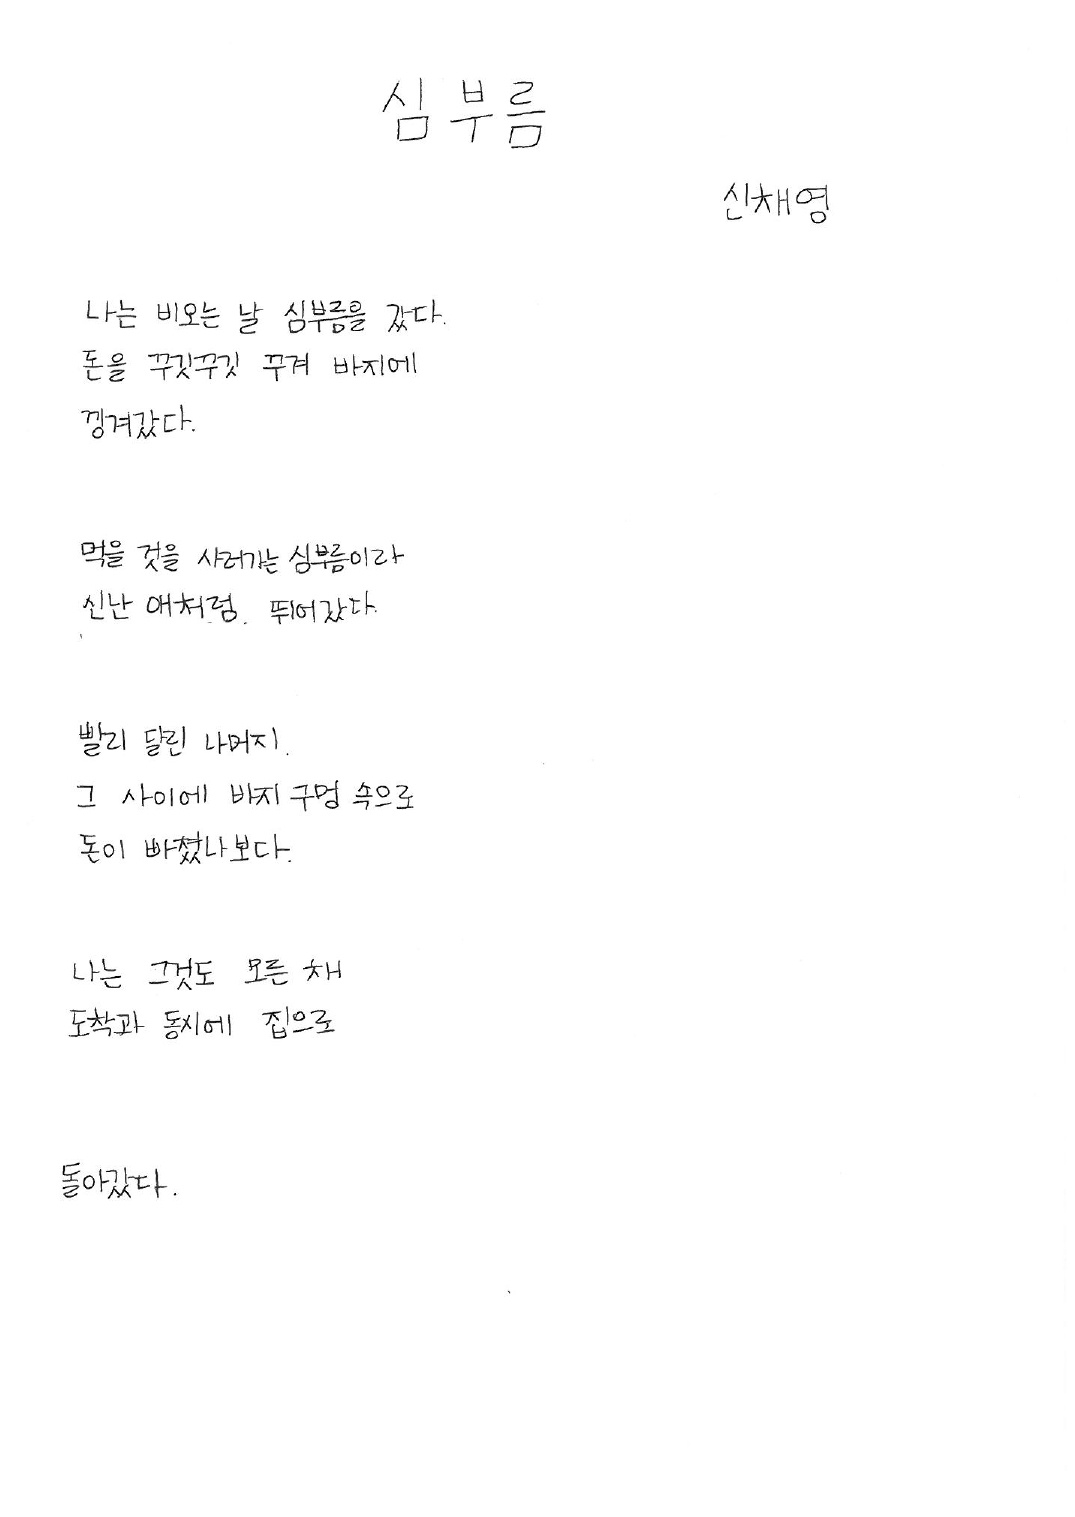 심부름
신채영
나는 비오는 날 심부름을 갔다.
돈을 꾸깃꾸깃 꾸겨 바지에
낑겨갔다.
먹을 것을 사러가는 심부름이라
신난 애처럼. 뛰어갔다.
빨리 달린 나머지.
그 사이에 바지 구멍 속으로
돈이 빠졌나보다.
나는 그것도 모른 채
도착과 동시에 집으로
돌아갔다.